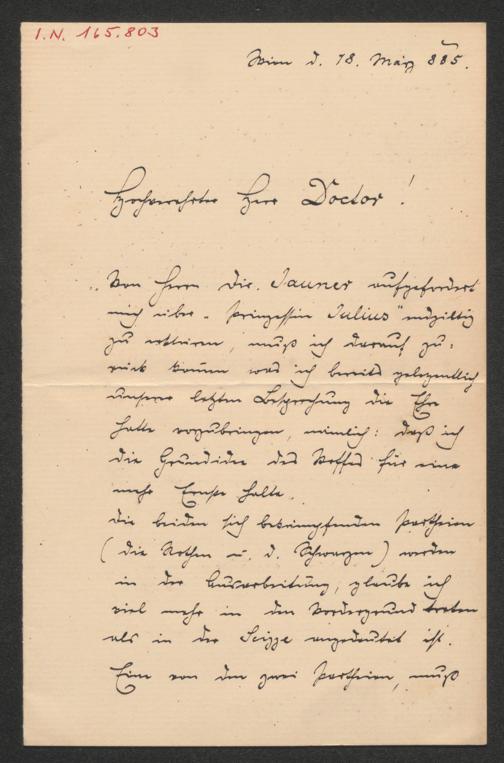 I.N. 165.803
Wien d. 18. März 885.
Hochverehrter Herr Doctor!
Von Herrn Dir. Jauner aufgefordert
mich über „Prinzessin Julius" endgiltig
zu erklären, muß ich darauf zu-
rück kommen was ich bereits gelegentlich
unserer letzten Besprechung die Ehre
hatte vorzubringen, nämlich: daß ich
die Grundidee des Stoffes für eine
mehr Ernste halte.
Die beiden sich bekämpfenden Partheien
(die Rothen u. d. Schwarzen) werden
in der Ausarbeitung, glaube ich
viel mehr in den Vordergrund treten
als in der Scizze angedeutet ist.
Eine von den zwei Partheien, muß